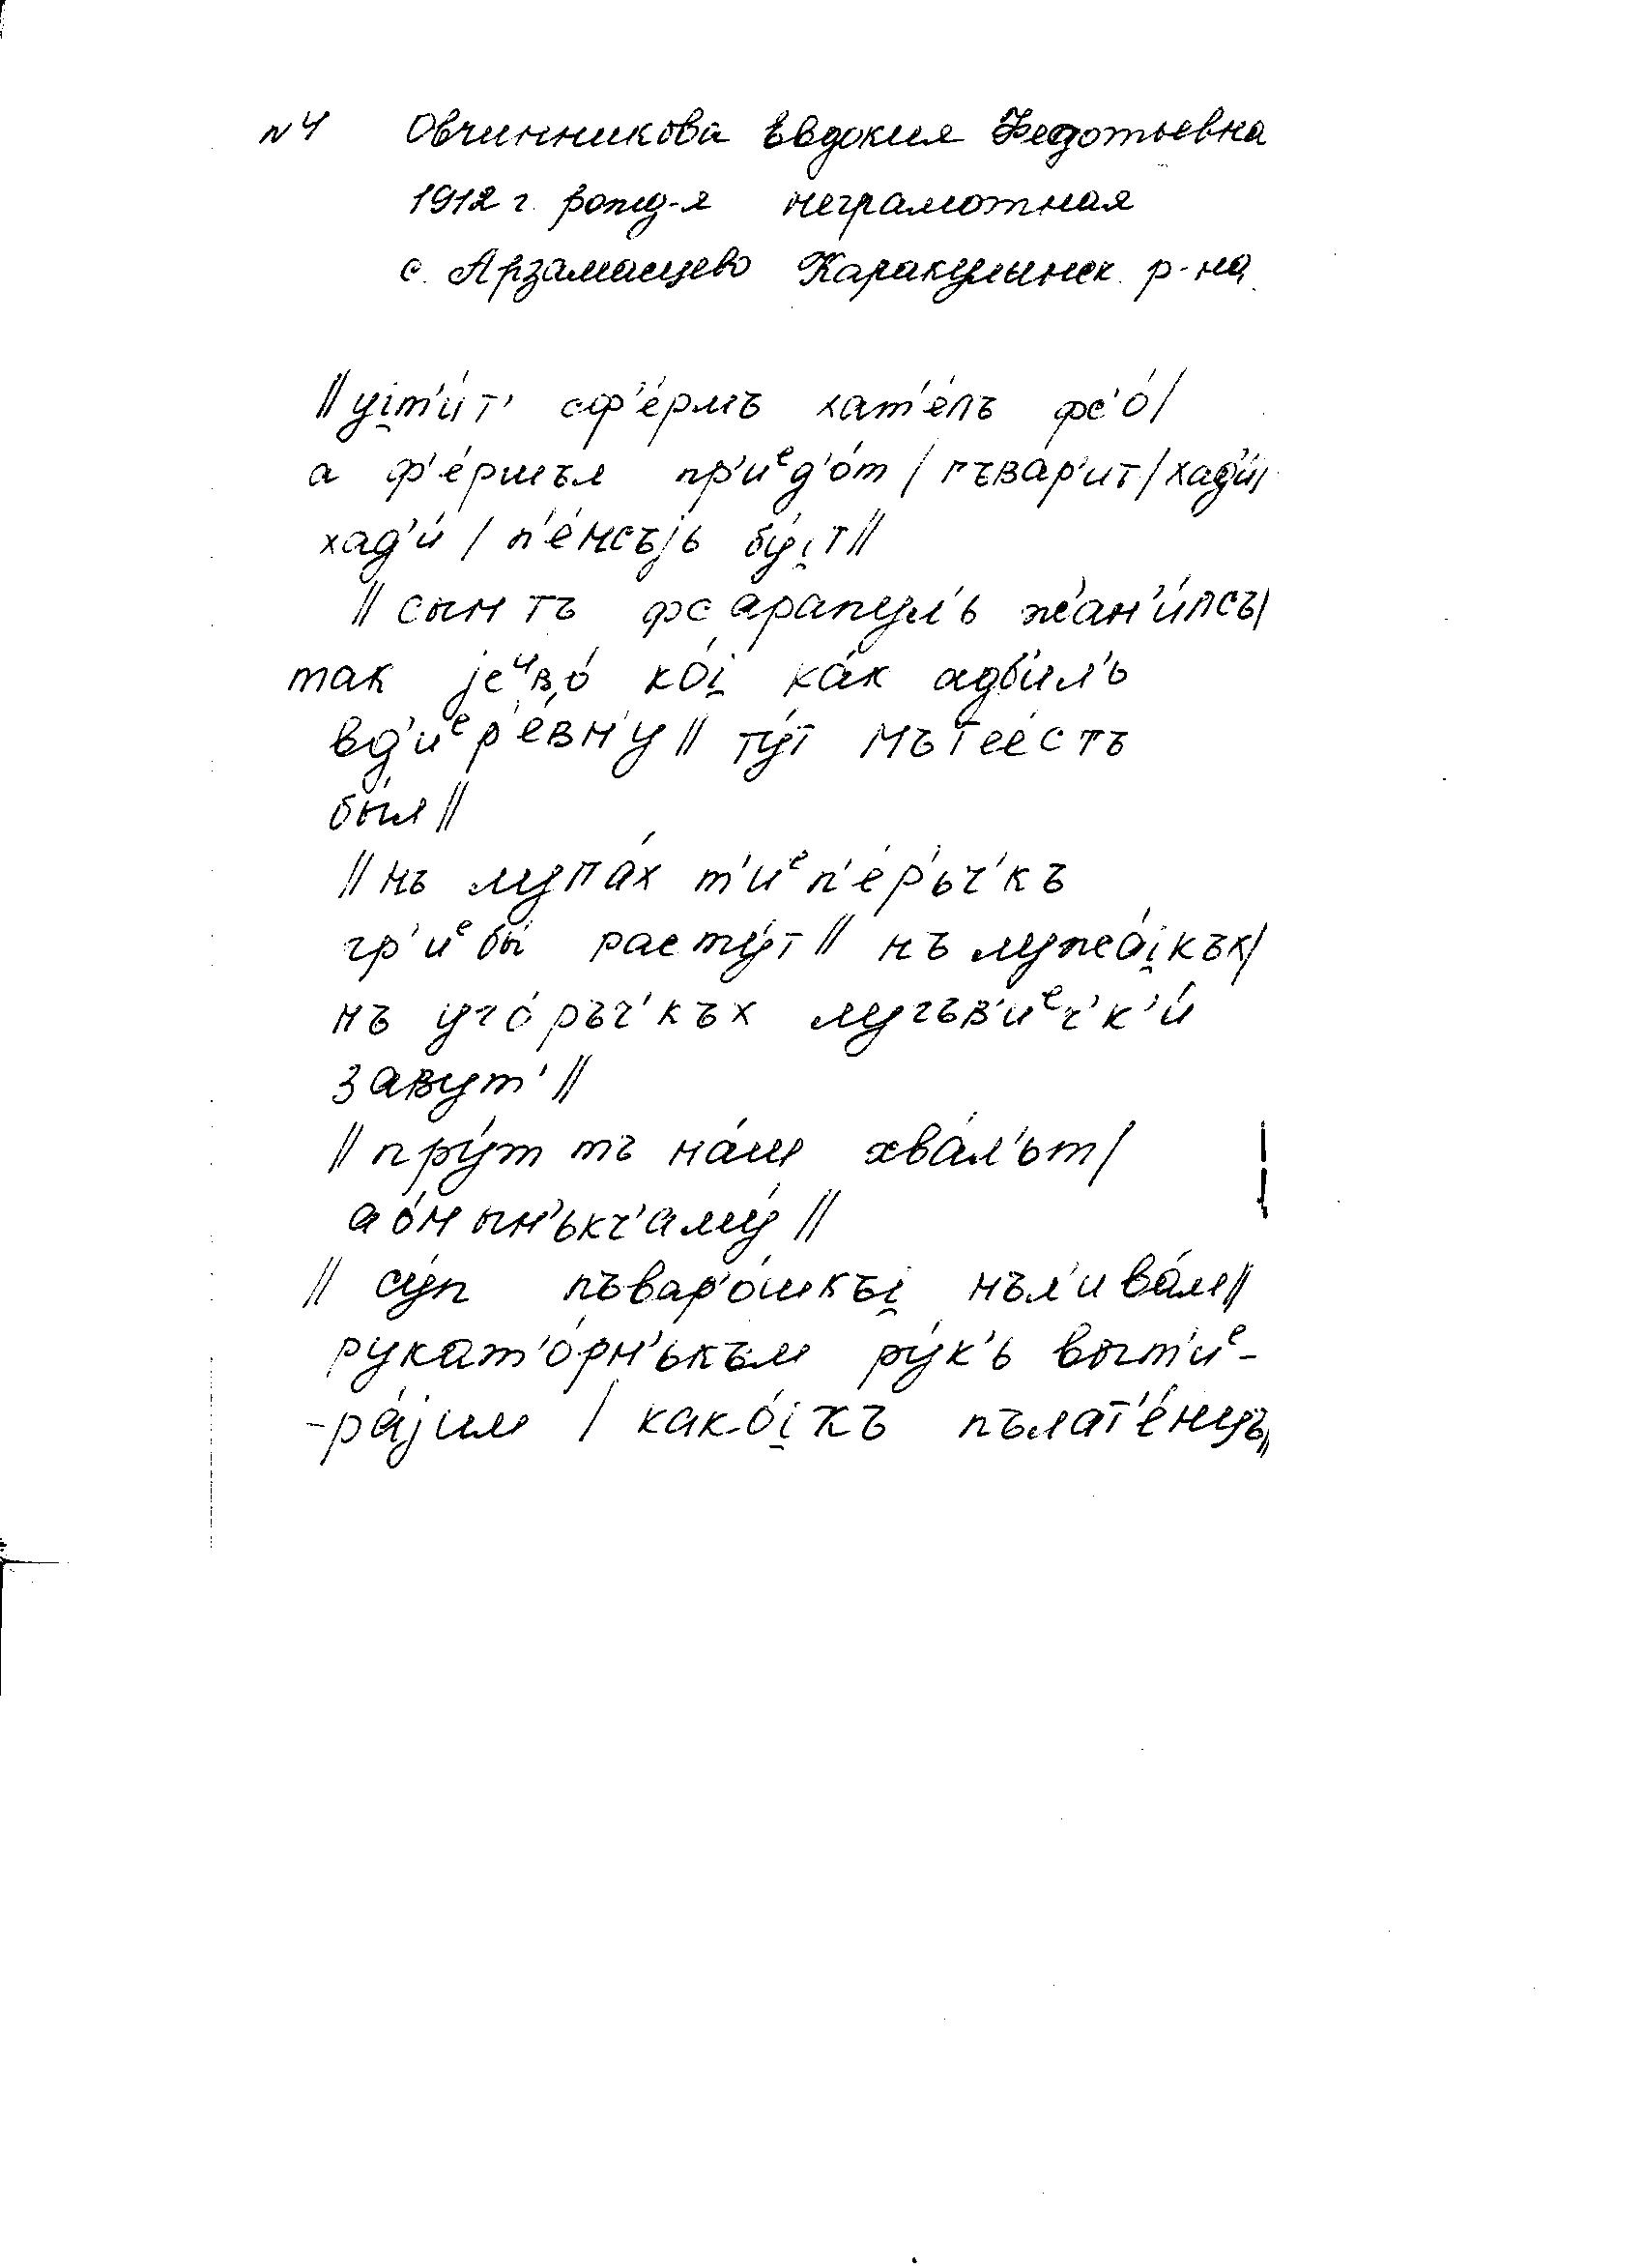 №4 Овчинникова Евдокия Федотьевна
1912 г. рожд-я неграмотная
с. Арзамасцево Каракулинск. р-на
// уi̯т'и́т' сф'е́рмъ хат'е́лъ фс'о́ /
а ф'е́ршъл пр'иᵉд'о́т / гъва́р'ит / хад'и́ /
хад'и́ / п'е́нсъjь бу́i̯т //
// сын тъ фсарапул'ь жан'и́лсъ /
так jеᶦᵛво́ ко́i̯ ка́к адби́л'ь
вд'иᵉр'е́вн'у // ту́т мътее́стъ
бы́л //
// нъ луга́х т'иᵉп'е́р'ьч'къ
гр'иᵉбы́ расту́т // нъ лужа́i̯къх /
нъ уго́ръч'къх лугъв'иᵉч'к'и́
завут' //
// пру́т тъ на́ш хва́л'ът /
ао́н ын'ькч'аму́ //
// су́п пъвар'о́шкъi̯ нъл'ива́л //
рукат'о́рн'ькъм ру́к'ь выт'иᵉ-
-ра́jим / како́i̯ къ пълат'е́нцъ //